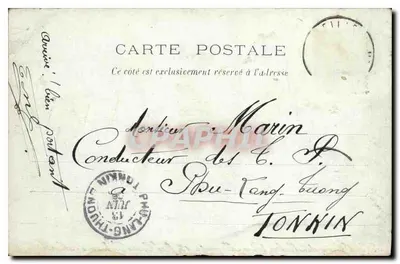 CARTE POSTALE
Ce côté est exclusivement réservé à l'adresse
arrivé! bien portant
Monsieur Marin
Conducteur des T. P.
à Phu-Lang-Thuong
TONKIN
PHU-LANG-THUONG
TONKIN
13
JUIN